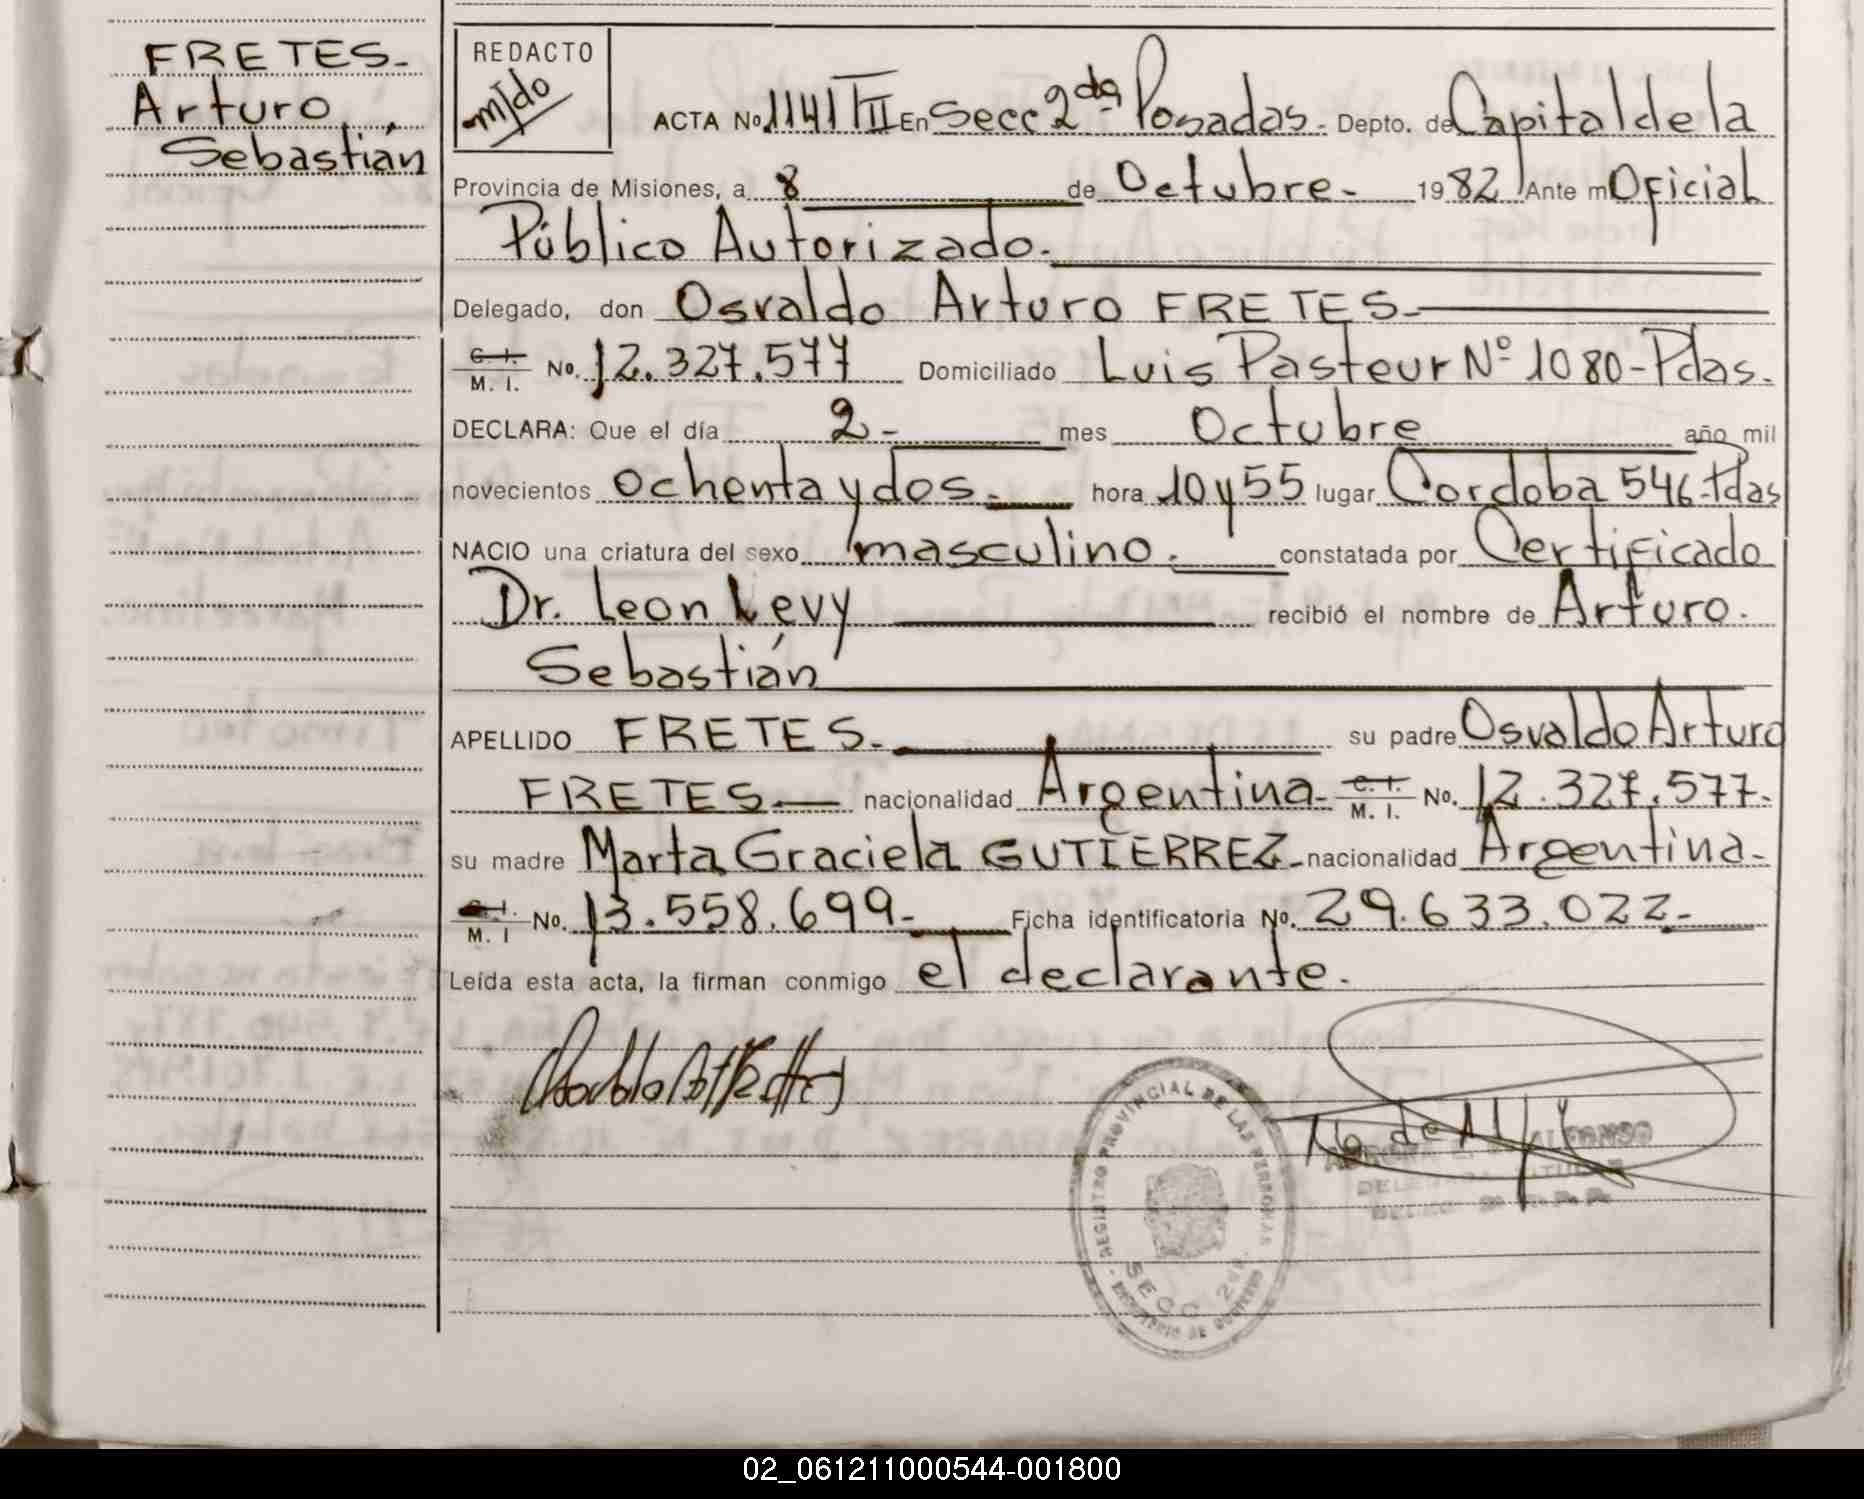 FRETES-
Arturo
Sebastián
REDACTO
ACTA No. 1141 TII En Secc 2da Posadas.- Depto. de Capital de la
Provincia de Misiones, a 8 de Octubre.- 1982 Ante mi Oficial
Público Autorizado.-
Delegado, don Osvaldo Arturo FRETES.-
C. I.
M. I. No. 12.327.577 Domiciliado Luis Pasteur Nº 1080-Pdas.
DECLARA: Que el día 2- mes Octubre año mil
novecientos ochenta y dos.- hora 10 y 55 lugar Cordoba 546-Pdas
NACIO una criatura del sexo masculino.- constatada por Certificado
Dr. Leon Levy recibió el nombre de Arturo.
Sebastián
APELLIDO FRETES.- su padre Osvaldo Arturo
FRETES.- nacionalidad Argentina.- C. I. M. I. No. 12.327.577.-
su madre Marta Graciela GUTIERREZ.- nacionalidad Argentina.-
C. I. M. I No. 13.558.699.- Ficha identificatoria No. 29.633.022.-
Leída esta acta, la firman conmigo el declarante.
REGISTRO PROVINCIAL DE LAS PERSONAS
SECC. 2da.
02_061211000544-001800